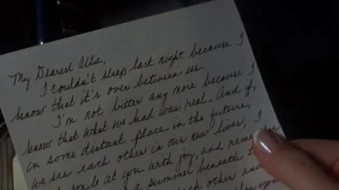 My Dearest Allie,
I couldn't sleep last night because I
know that it's over between us.
I'm not bitter any more because I
know that what we had was real. And if,
in some distant place in the future,
we see each other in our new lives, I
smile at you with joy, and
summer beneath
each other